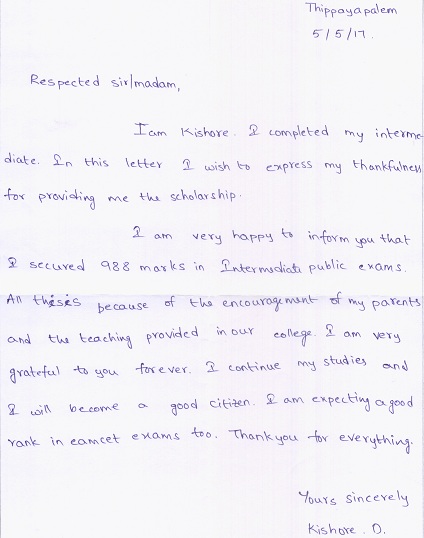 Thippayapalem
5/5/17.
Respected sir/madam,
I am Kishore. I completed my interme
diate. In this letter I wish to express my thankfulness
for providing me the scholarship.
I am very happy to inform you that
I secured 988 marks in Intermediate public exams.
All thisis because of the encouragement of my parents
and the teaching provided in our college. I am very
grateful to you forever. I continue my studies and
I will become a good citizen. I am expecting a good
rank in eamcet exams too. Thankyou for everything.
Yours sincerely
Kishore . D.